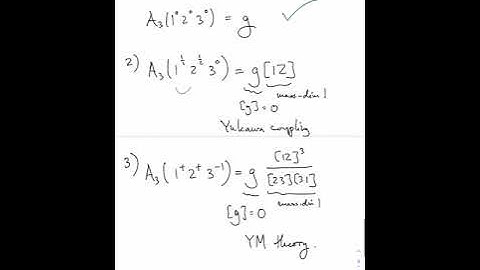 A₃(1⁰2⁰3⁰) = g
2) A₃(1^½ 2^½ 3⁰) = g[12]
mass-dim 1
[g]=0
Yukawa coupling
3) A₃(1⁺2⁺3⁻¹) = g [12]³/[23][31]
mass-dim 1
[g]=0
YM theory.